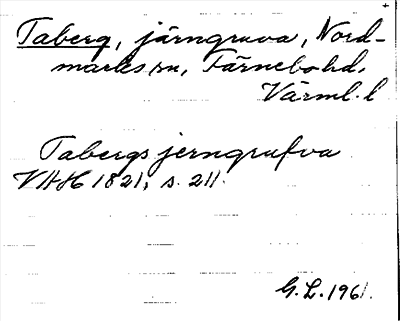 Taberg, järngruva, Nord-
marks sn, Färnebo hd,
Värml. l
Tabergs jerngrufva
VAH 1821, s. 211.
G.L. 1961.